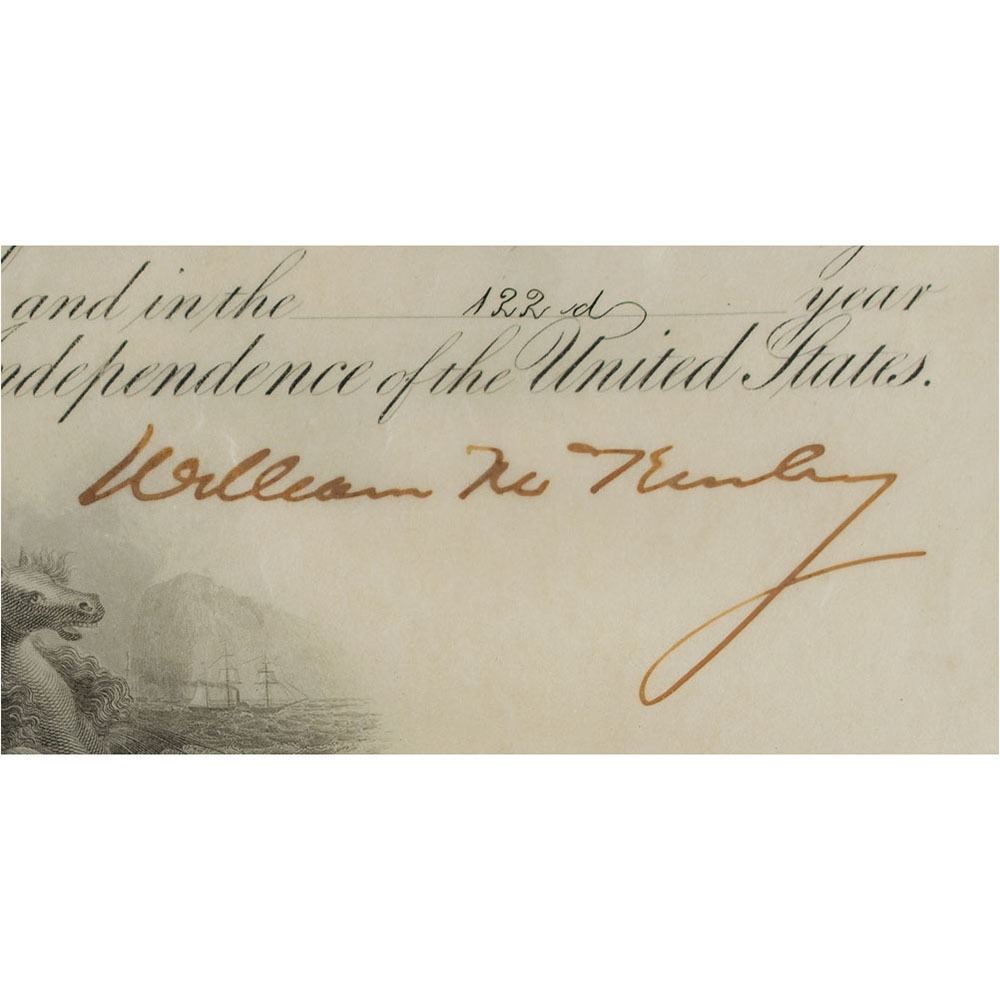 and in the 122d year
ndependence of the United States.
William McKinley